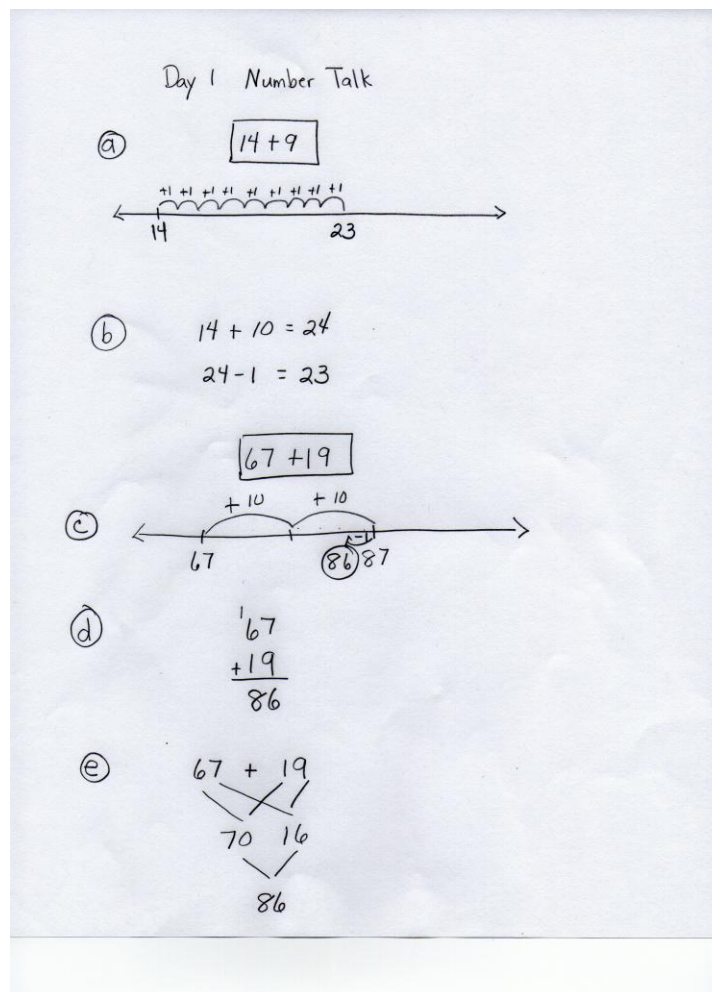 Day 1 Number Talk
a 14 + 9
+1 +1 +1 +1 +1 +1 +1 +1 +1
14 23
b 14 + 10 = 24
24 - 1 = 23
67 + 19
+ 10 + 10
c
-1
67 86 87
d 1
67
+19
86
e 67 + 19
70 16
86